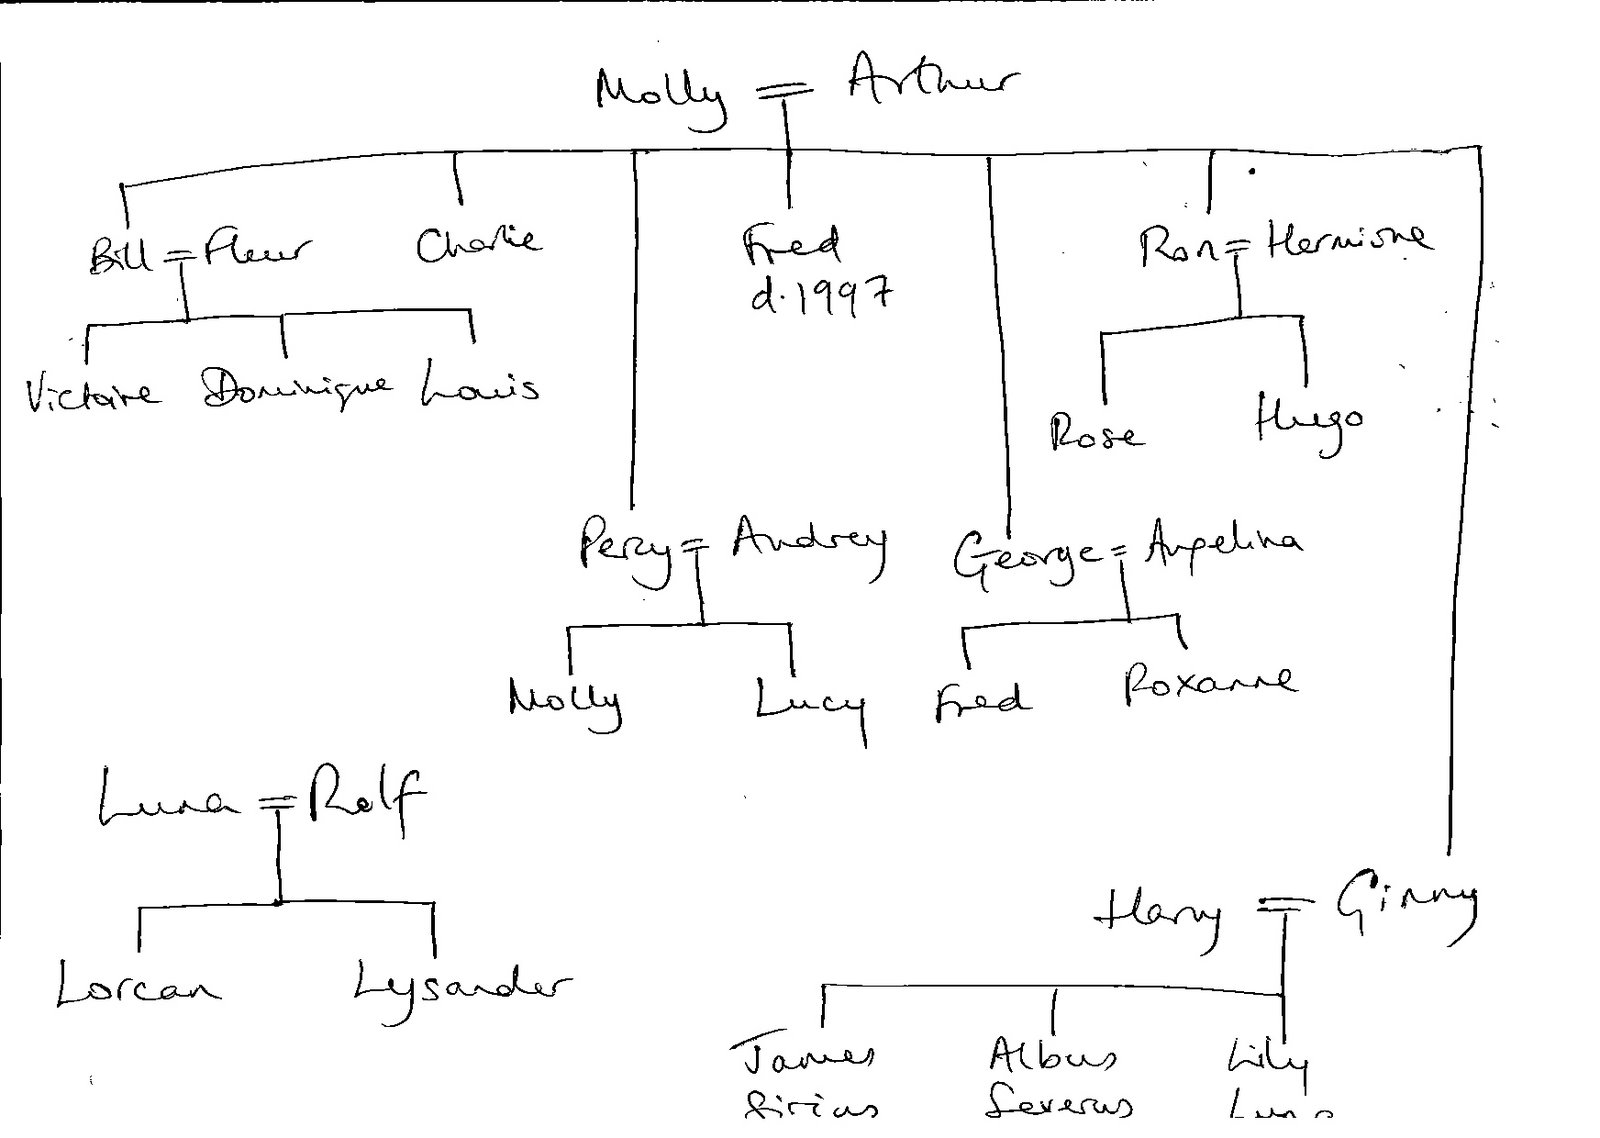 Molly = Arthur
Bill = Fleur Charlie Fred Ron = Hermione
d. 1997
Victoire Dominique Louis
Rose Hugo
Percy = Audrey George = Angelina
Molly Lucy Fred Roxanne
Luna = Rolf
Harry = Ginny
Lorcan Lysander
James Albus Lily
Sirius Severus Luna